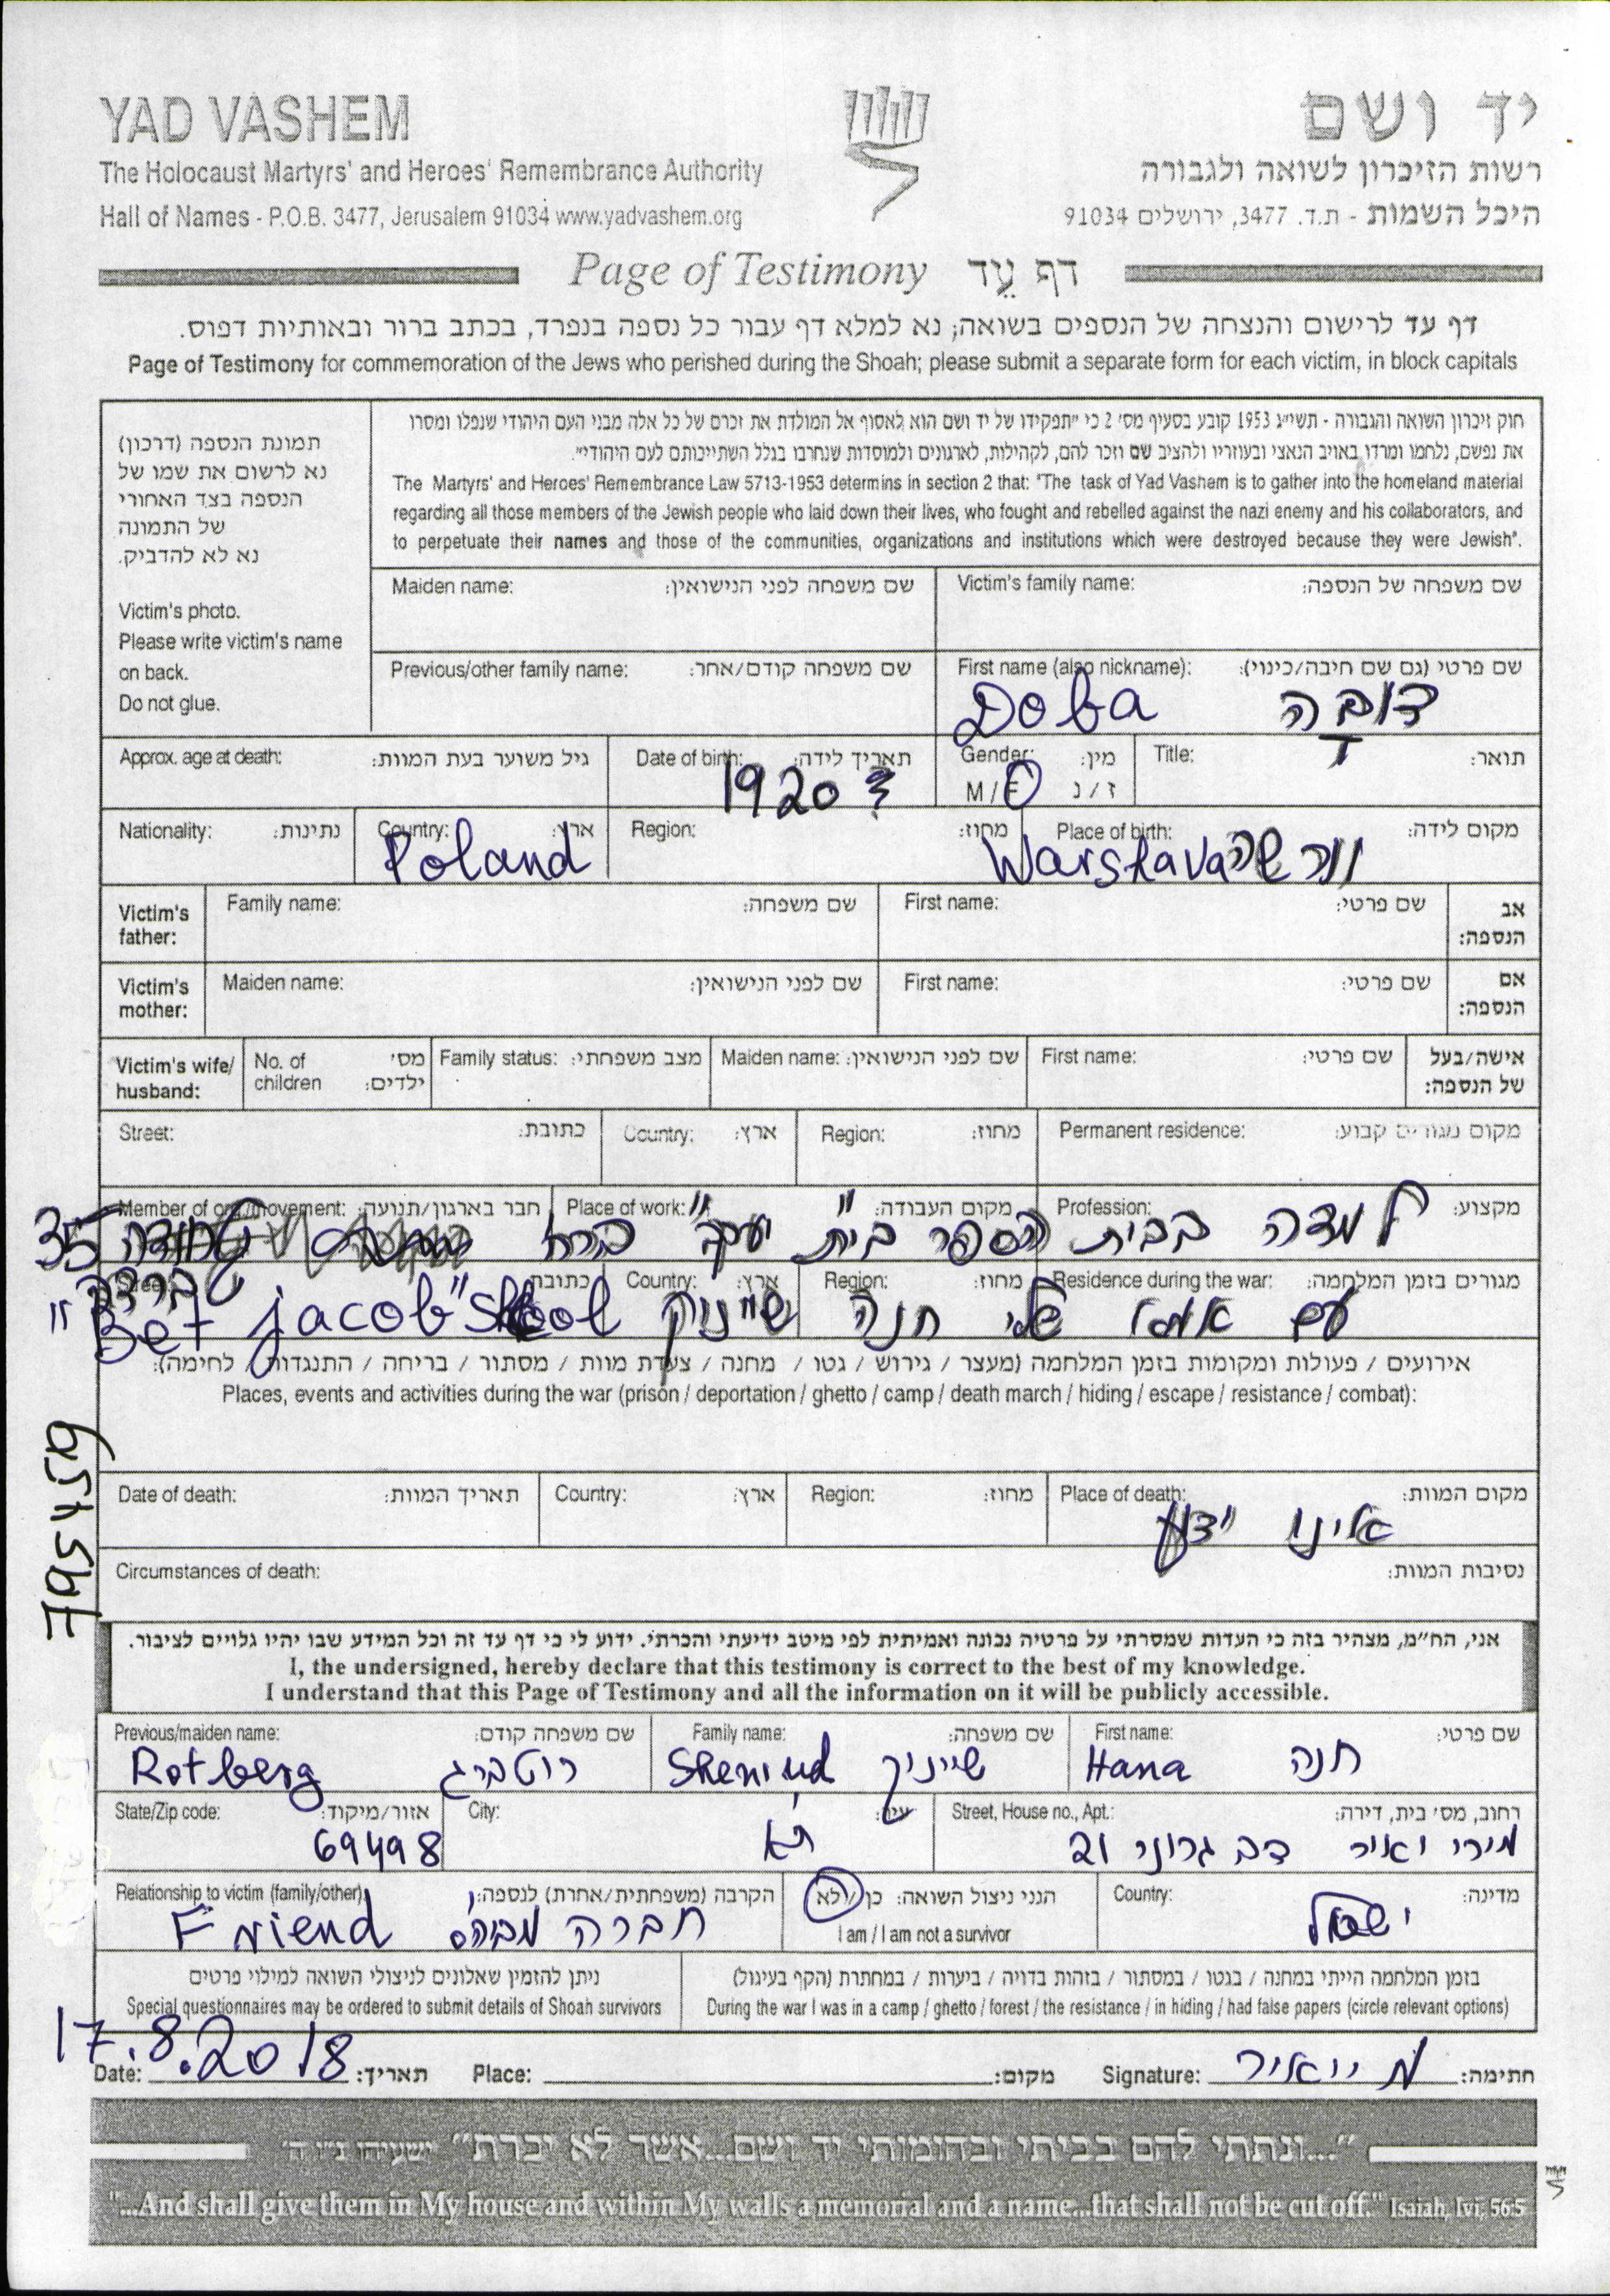 YAD VASHEM
יד ושם
The Holocaust Martyrs' and Heroes' Remembrance Authority
רשות הזיכרון לשואה ולגבורה
Hall of Names - P.O.B. 3477, Jerusalem 91034 www.yadvashem.org
היכל השמות - ת.ד. 3477, ירושלים 91034
Page of Testimony דף עֵד
דף עד לרישום והנצחה של הנספים בשואה; נא למלא דף עבור כל נספה בנפרד, בכתב ברור ובאותיות דפוס.
Page of Testimony for commemoration of the Jews who perished during the Shoah; please submit a separate form for each victim, in block capitals
תמונת הנספה (דרכון)
נא לרשום את שמו של
הנספה בצד האחורי
של התמונה
נא לא להדביק.
Victim's photo.
Please write victim's name
on back.
Do not glue.
חוק זיכרון השואה והגבורה - תשי״ג 1953 קובע בסעיף מס׳ 2 כי ״תפקידו של יד ושם הוא לאסוף אל המולדת את זכרם של כל אלה מבני העם היהודי שנפלו ומסרו
את נפשם, נלחמו ומרדו באויב הנאצי ובעוזריו ולהציב שם וזכר להם, לקהילות, לארגונים ולמוסדות שנחרבו בגלל השתייכותם לעם היהודי״.
The Martyrs' and Heroes' Remembrance Law 5713-1953 determins in section 2 that: "The task of Yad Vashem is to gather into the homeland material
regarding all those members of the Jewish people who laid down their lives, who fought and rebelled against the nazi enemy and his collaborators, and
to perpetuate their names and those of the communities, organizations and institutions which were destroyed because they were Jewish".
Maiden name: שם משפחה לפני הנישואין:
Victim's family name: שם משפחה של הנספה:
Previous/other family name: שם משפחה קודם/אחר:
First name (also nickname): שם פרטי (גם שם חיבה/כינוי):
Doba דובה
Approx. age at death: גיל משוער בעת המוות:
Date of birth: תאריך לידה:
1920 ?
Gender: מין:
M / F ז / נ
Title: תואר:
Nationality: נתינות:
Country: ארץ:
Poland
Region: מחוז:
Place of birth: מקום לידה:
Warshava וורשה
Victim's father:
Family name: שם משפחה:
First name: שם פרטי:
אב הנספה:
Victim's mother:
Maiden name: שם לפני הנישואין:
First name: שם פרטי:
אם הנספה:
Victim's wife/ husband:
No. of children מס׳ ילדים:
Family status: מצב משפחתי:
Maiden name: שם לפני הנישואין:
First name: שם פרטי:
אישה/בעל של הנספה:
Street: כתובת:
Country: ארץ:
Region: מחוז:
Permanent residence: מקום מגורים קבוע:
Member of org./movement: חבר בארגון/תנועה:
Place of work: מקום העבודה:
Profession: מקצוע:
למדה בבית הספר "בית יעקב"
35
Street: כתובת:
Country: ארץ:
Region: מחוז:
Residence during the war: מגורים בזמן המלחמה:
עם אמא שלי חנה שיינוק
"Bet jacob" School
אירועים / פעולות ומקומות בזמן המלחמה (מעצר / גירוש / גטו / מחנה / צעדת מוות / מסתור / בריחה / התנגדות / לחימה):
Places, events and activities during the war (prison / deportation / ghetto / camp / death march / hiding / escape / resistance / combat):
Date of death: תאריך המוות:
Country: ארץ:
Region: מחוז:
Place of death: מקום המוות:
אינו ידוע
Circumstances of death: נסיבות המוות:
אני, הח״מ, מצהיר בזה כי העדות שמסרתי על פרטיה נכונה ואמיתית לפי מיטב ידיעתי והכרתי. ידוע לי כי דף עד זה וכל המידע שבו יהיו גלויים לציבור.
I, the undersigned, hereby declare that this testimony is correct to the best of my knowledge.
I understand that this Page of Testimony and all the information on it will be publicly accessible.
Previous/maiden name: שם משפחה קודם:
Rotberg רוטברג
Family name: שם משפחה:
שיינוק
First name: שם פרטי:
Hana חנה
State/Zip code: אזור/מיקוד:
69498
City: עיר:
ת'א
Street, House no., Apt.: רחוב, מס׳ בית, דירה:
מירי ואיר דב גרונר 21
Relationship to victim (family/other): הקרבה (משפחתית/אחרת) לנספה:
Friend חברה
הנני ניצול השואה: כן / לא
I am / I am not a survivor
Country: מדינה:
ישראל
ניתן להזמין שאלונים לניצולי השואה למילוי פרטים
Special questionnaires may be ordered to submit details of Shoah survivors
בזמן המלחמה הייתי במחנה / בגטו / במסתור / בזהות בדויה / ביערות / במחתרת (הקף בעיגול)
During the war I was in a camp / ghetto / forest / the resistance / in hiding / had false papers (circle relevant options)
Date: 17.8.2018 תאריך:
Place: מקום:
Signature: חתימה:
"...ונתתי להם בביתי ובחומותי יד ושם...אשר לא יכרת" ישעיהו נ״ו ה׳
"...And shall give them in My house and within My walls a memorial and a name...that shall not be cut off." Isaiah, lvi, 56:5